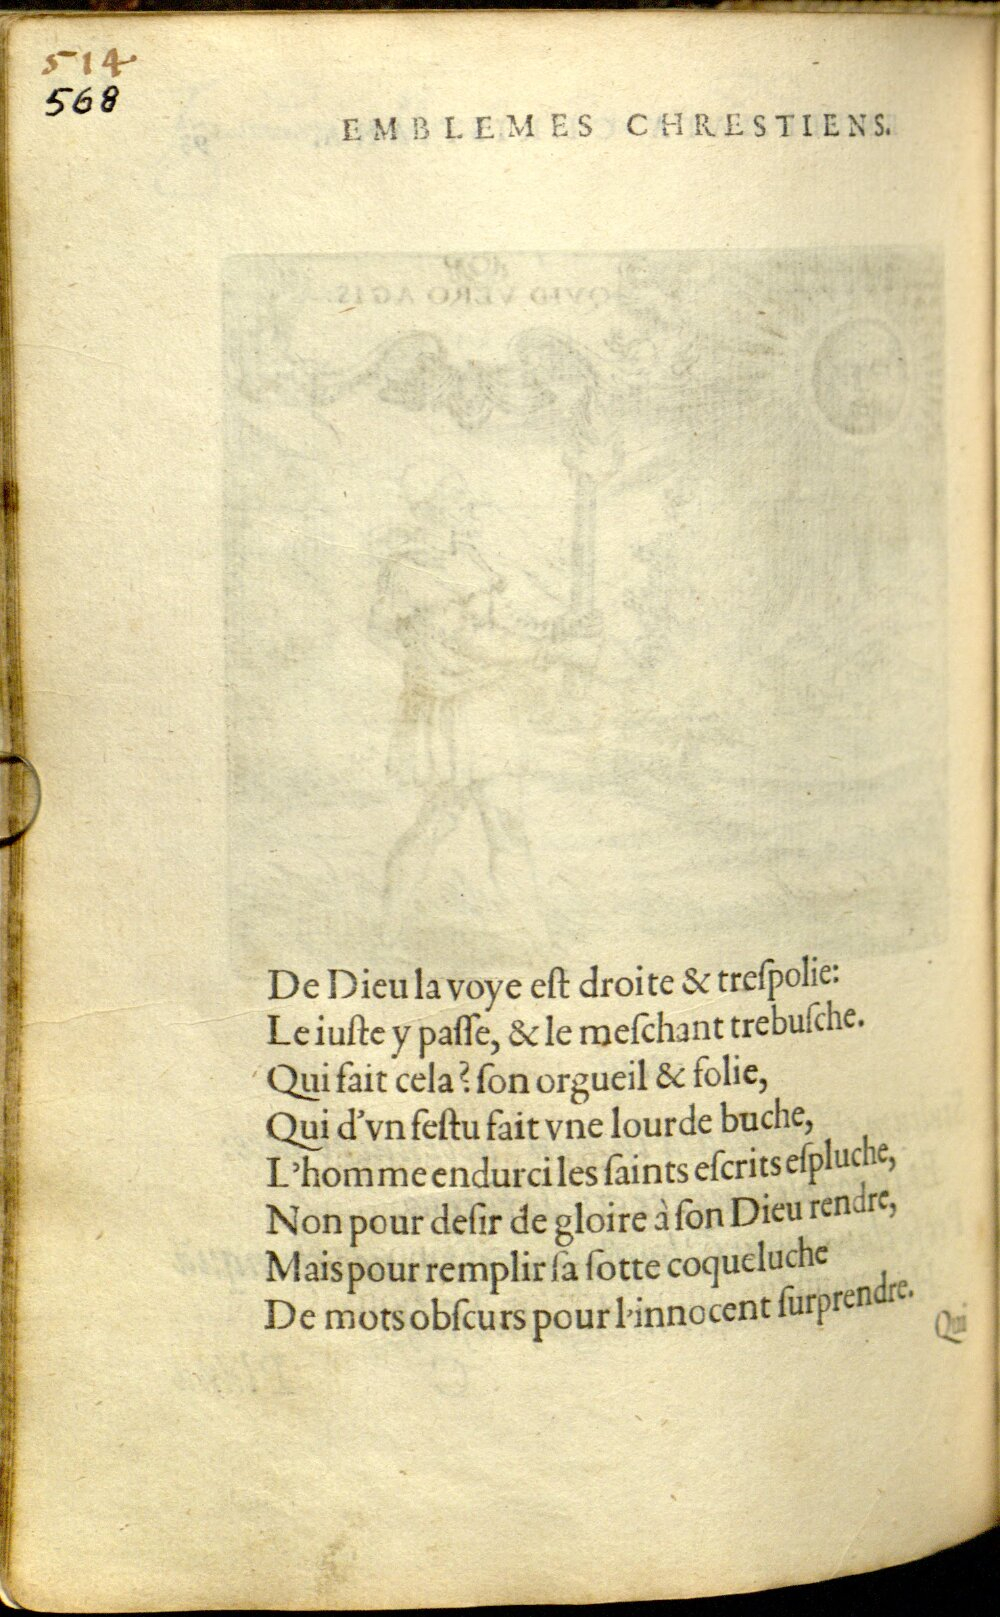 514
568
EMBLEMES CHRESTIENS.
De Dieu la voye eſt droite & treſpolie:
Le iuſte y paſſe, & le meſchant trebuſche.
Qui fait cela? ſon orgueil & folie,
Qui d'vn feſtu fait vne lourde buche,
L'homme endurci les ſaints eſcrits eſpluche,
Non pour deſir de gloire à ſon Dieu rendre,
Mais pour remplir ſa ſotte coqueluche
De mots obſcurs pour l'innocent ſurprendre.
Qui